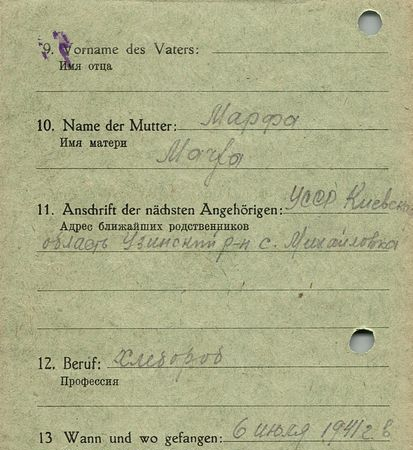 9. Vorname des Vaters:
Имя отца
10. Name der Mutter: Марфа
Имя матери
Marfa
11. Anschrift der nächsten Angehörigen: УССР Киевская
Адрес ближайших родственников
область Узинский р-н с. Михайловка
12. Beruf: хлебороб
Профессия
13 Wann und wo gefangen: 6 июля 1941 г. в